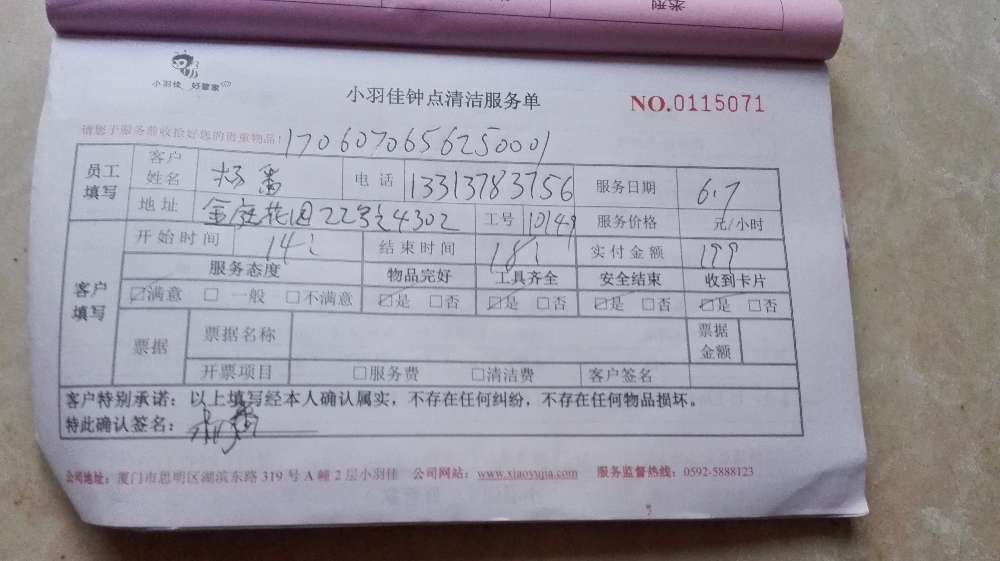 类型
小羽佳 好管家
小羽佳钟点清洁服务单
NO.0115071
请您于服务前收拾好您的贵重物品!
1706070656250001
员工填写 客户姓名 杨番 电话 13313783756 服务日期 6.7
地址 金庭花园22号之4302 工号 10149 服务价格 元/小时
客户填写 开始时间 14: 结束时间 18: 实付金额 199
服务态度 物品完好 工具齐全 安全结束 收到卡片
☑满意 □ 一般 □不满意 ☑是 □否 ☑是 □否 ☑是 □否 ☑是 □否
票据 票据名称 票据金额
开票项目 □服务费 □清洁费 客户签名
客户特别承诺:以上填写经本人确认属实,不存在任何纠纷,不存在任何物品损坏。
特此确认签名:
公司地址:厦门市思明区湖滨东路 319 号 A 幢 2 层小羽佳 公司网站:www.xiaoyujia.com 服务监督热线:0592-5888123